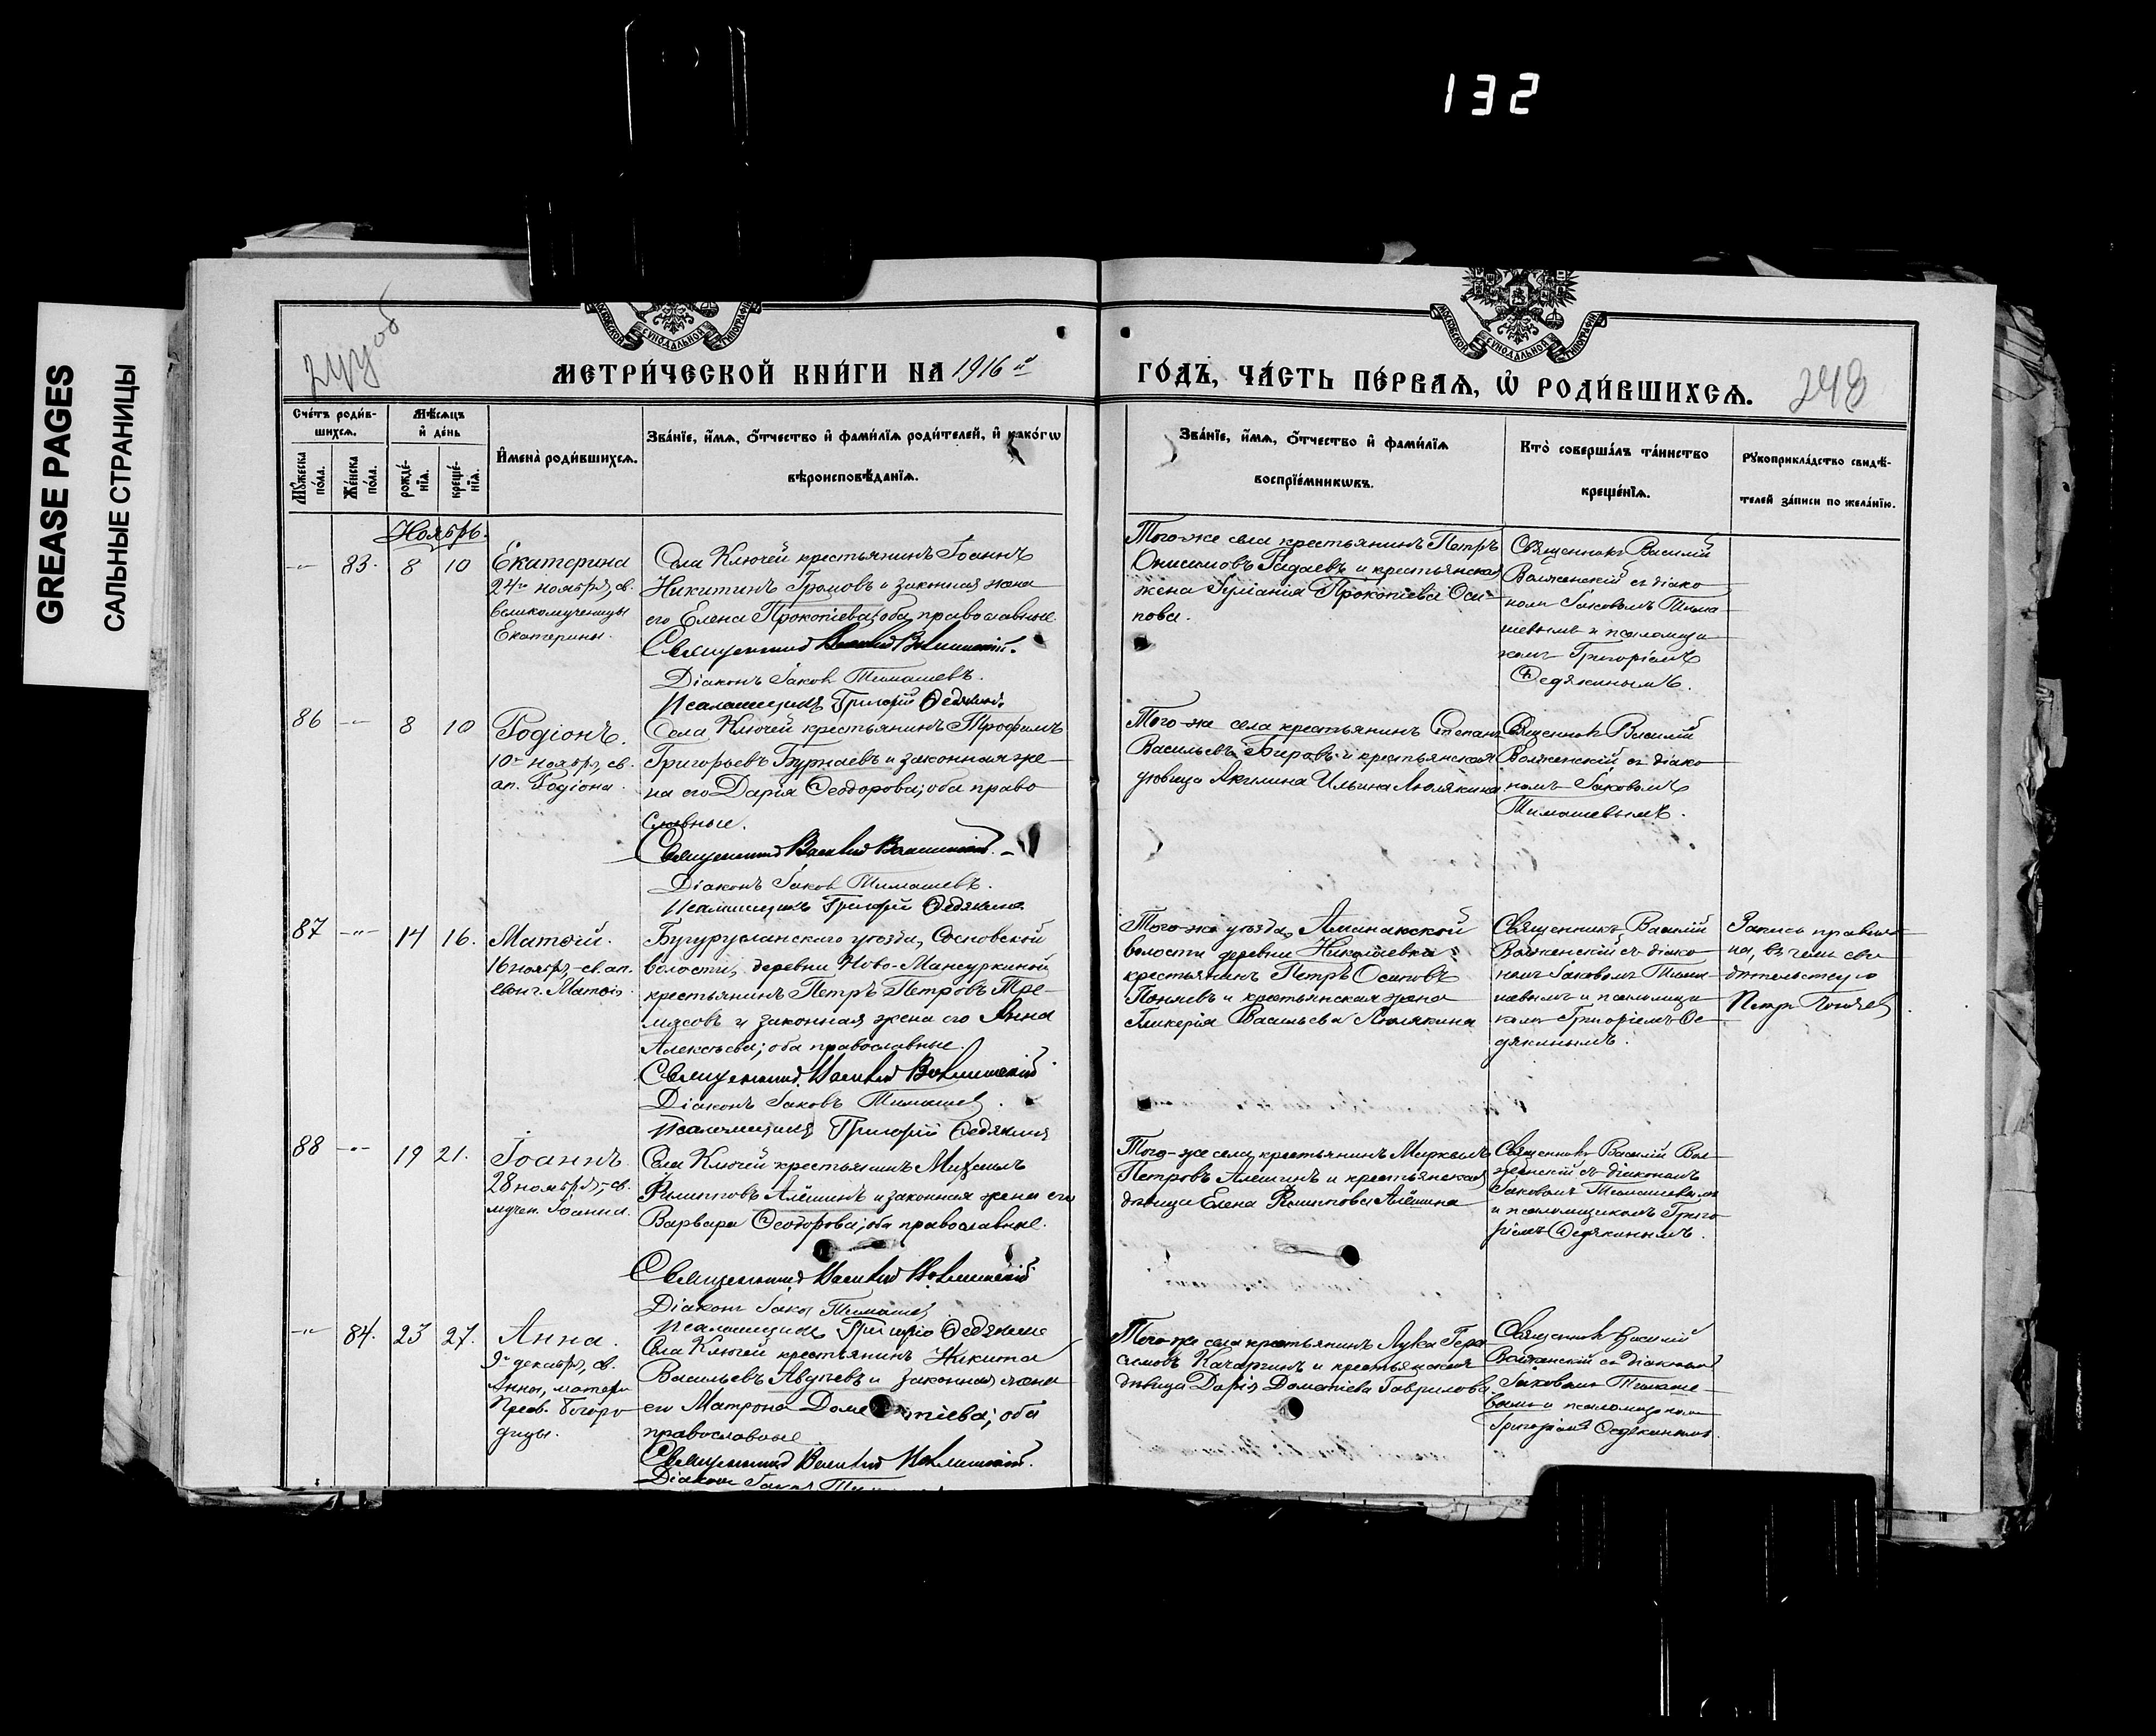 132
GREASE PAGES
САЛЬНЫЕ СТРАНИЦЫ
МЕТРИ́ЧЕСКОЙ КНИ́ГИ НА 1916 й
ГО́ДЪ, ЧА́СТЬ ПЕ́РВАѦ, Ѡ҆ РОДИ́ВШИХСѦ.
248
Сче́тъ роди́в-
шихсѧ.
Мѣ́сѧцъ
и҆ де́нь
Мꙋ́жеска по́ла.
Же́нска по́ла.
рожде́-
нїѧ.
креще́-
нїѧ.
И҆мена̀ роди́вшихсѧ.
Зва́нїе, и҆́мѧ, о҆́тчество и҆ фами́лїѧ роди́телей, и҆ како́гѡ
вѣроисповѣ́данїѧ.
Зва́нїе, и҆́мѧ, о҆́тчество и҆ фами́лїѧ
воспрїе́мникѡвъ.
Кто̀ соверша́лъ та́инство
креще́нїѧ.
Рꙋкоприкла́дство свидѣ́-
телей за́писи по жела́нїю.
Ноябрь.
83. 8 10
Екатерина
24го ноября, св.
великомученицы
Екатерины.
Села Ключей крестьянинъ Іоаннъ
Никитинъ Громовъ и законная жена
его Елена Прокопіева; оба православные
Священникъ Василій Волженскій.
Діаконъ Іаковъ Тимашевъ.
Псаломщикъ Григорій Ѳедякинъ.
Того-же села крестьянинъ Петръ
Онисимовъ и крестьянская
жена Іуліанія Прокопіева Оси-
пова.
Священникъ Василій
Волженскій съ діако-
номъ Іаковомъ Тима-
шевымъ и псаломщи-
комъ Григоріемъ
Ѳедякинымъ.
86 8 10
Родіонъ.
10го ноября, св.
ап. Родіона.
Села Ключей крестьянинъ Трофимъ
Григорьевъ Бурнаевъ и законная же-
на его Дарія Ѳеодорова; оба право-
славные.
Священникъ Василій Волженскій.
Діаконъ Іаковъ Тимашевъ.
Псаломщикъ Григорій Ѳедякинъ
Того-же села крестьянинъ Степанъ
Васильевъ и крестьянская
дѣвица Акилина Ильина Люлякина
Священникъ Василій
Волженскій съ діако-
номъ Іаковомъ
Тимашевымъ.
87 14 16.
Матѳій.
16 ноября, св. ап.
еванг. Матѳія.
Бугурусланскаго уѣзда, Сосновской
волости, деревни Ново-Мансуркиной
крестьянинъ Петръ Петровъ Тре-
мясовъ и законная жена его Анна
Алексѣева; оба православные.
Священникъ Василій Волженскій
Діаконъ Іаковъ Тимашевъ.
Псаломщикъ Григорій Ѳедякинъ
Того-же уѣзда, Аманакской
волости деревни Николаевки
крестьянинъ Петръ Осиповъ
Поняевъ и крестьянская жена
Гликерія Васильева Люлякина
Священникъ Василій
Волженскій съ діако-
номъ Іаковомъ Тима-
шевымъ и псаломщи-
комъ Григоріемъ Ѳе-
дякинымъ.
Запись правиль-
на, въ чемъ сви-
дѣтельствую
Петръ Поняевъ
88 19 21.
Іоаннъ
28 ноября, св.
мучен. Іоанна.
Села Ключей крестьянинъ Михаилъ
Филипповъ Алёшинъ и законная жена его
Варвара Ѳеодорова; оба православные.
Священникъ Василій Волженскій
Діаконъ Іаковъ Тимашевъ
Псаломщикъ Григорій Ѳедякинъ
Того-же села крестьянинъ Маркелъ
Петровъ Алёшинъ и крестьянская
дѣвица Елена Филиппова Алёшина
Священникъ Василій Вол-
женскій съ діакономъ
Іаковомъ Тимашевымъ
и псаломщикомъ Григо-
ріемъ Ѳедякинымъ.
84. 23 27.
Анна.
9го декабря, св.
Анны, матери
Пресв. Богоро-
дицы.
Села Ключей крестьянинъ Никита
Васильевъ Авдѣевъ и законная жена
его Матрона Доментіева; оба
православные
Священникъ Василій Волженскій.
Діаконъ Іаковъ
Того-же села крестьянинъ Лука Гера-
симовъ Качаргинъ и крестьянская
дѣвица Дарія Дометіева Гаврилова.
Священникъ Василій
Волженскій съ діакономъ
Іаковомъ Тимаше-
вымъ и псаломщикомъ
Григоріемъ Ѳедякинымъ.